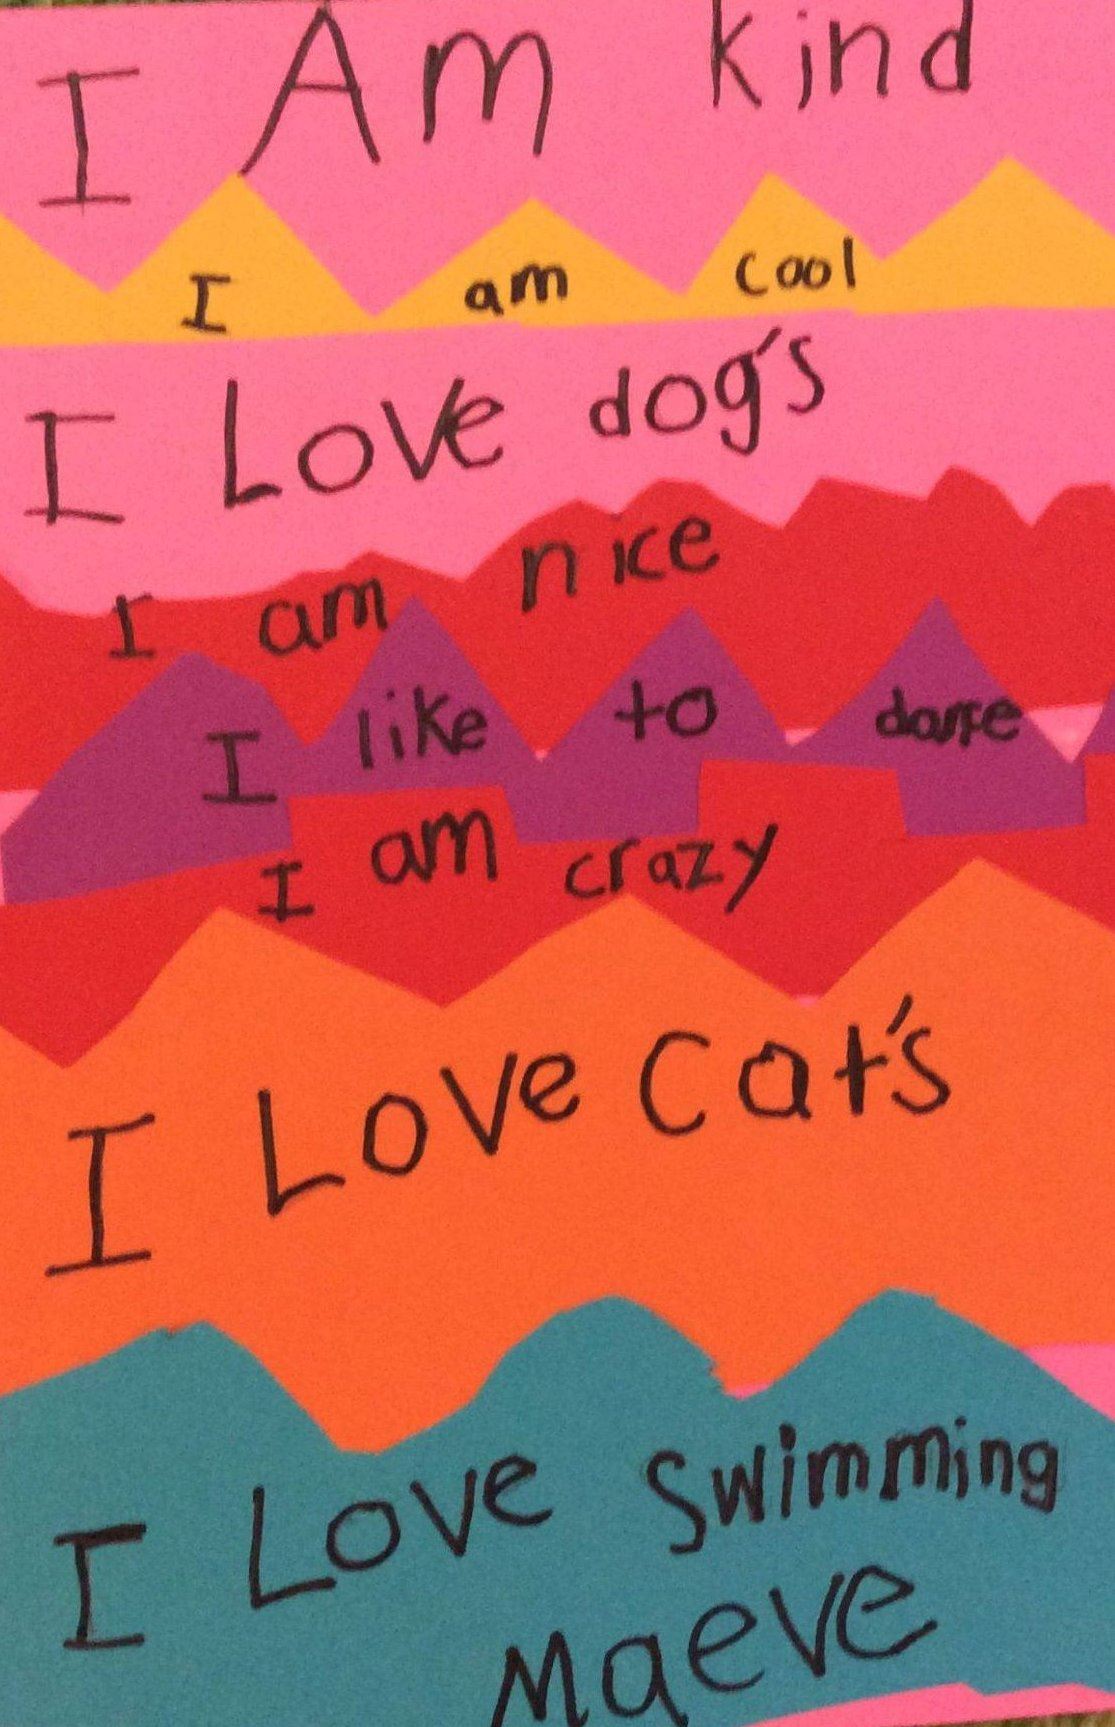 I Am kind
I am cool
I Love dog's
I am nice
I like to
I am crazy
I Love Cat's
I Love Swimming
Maeve